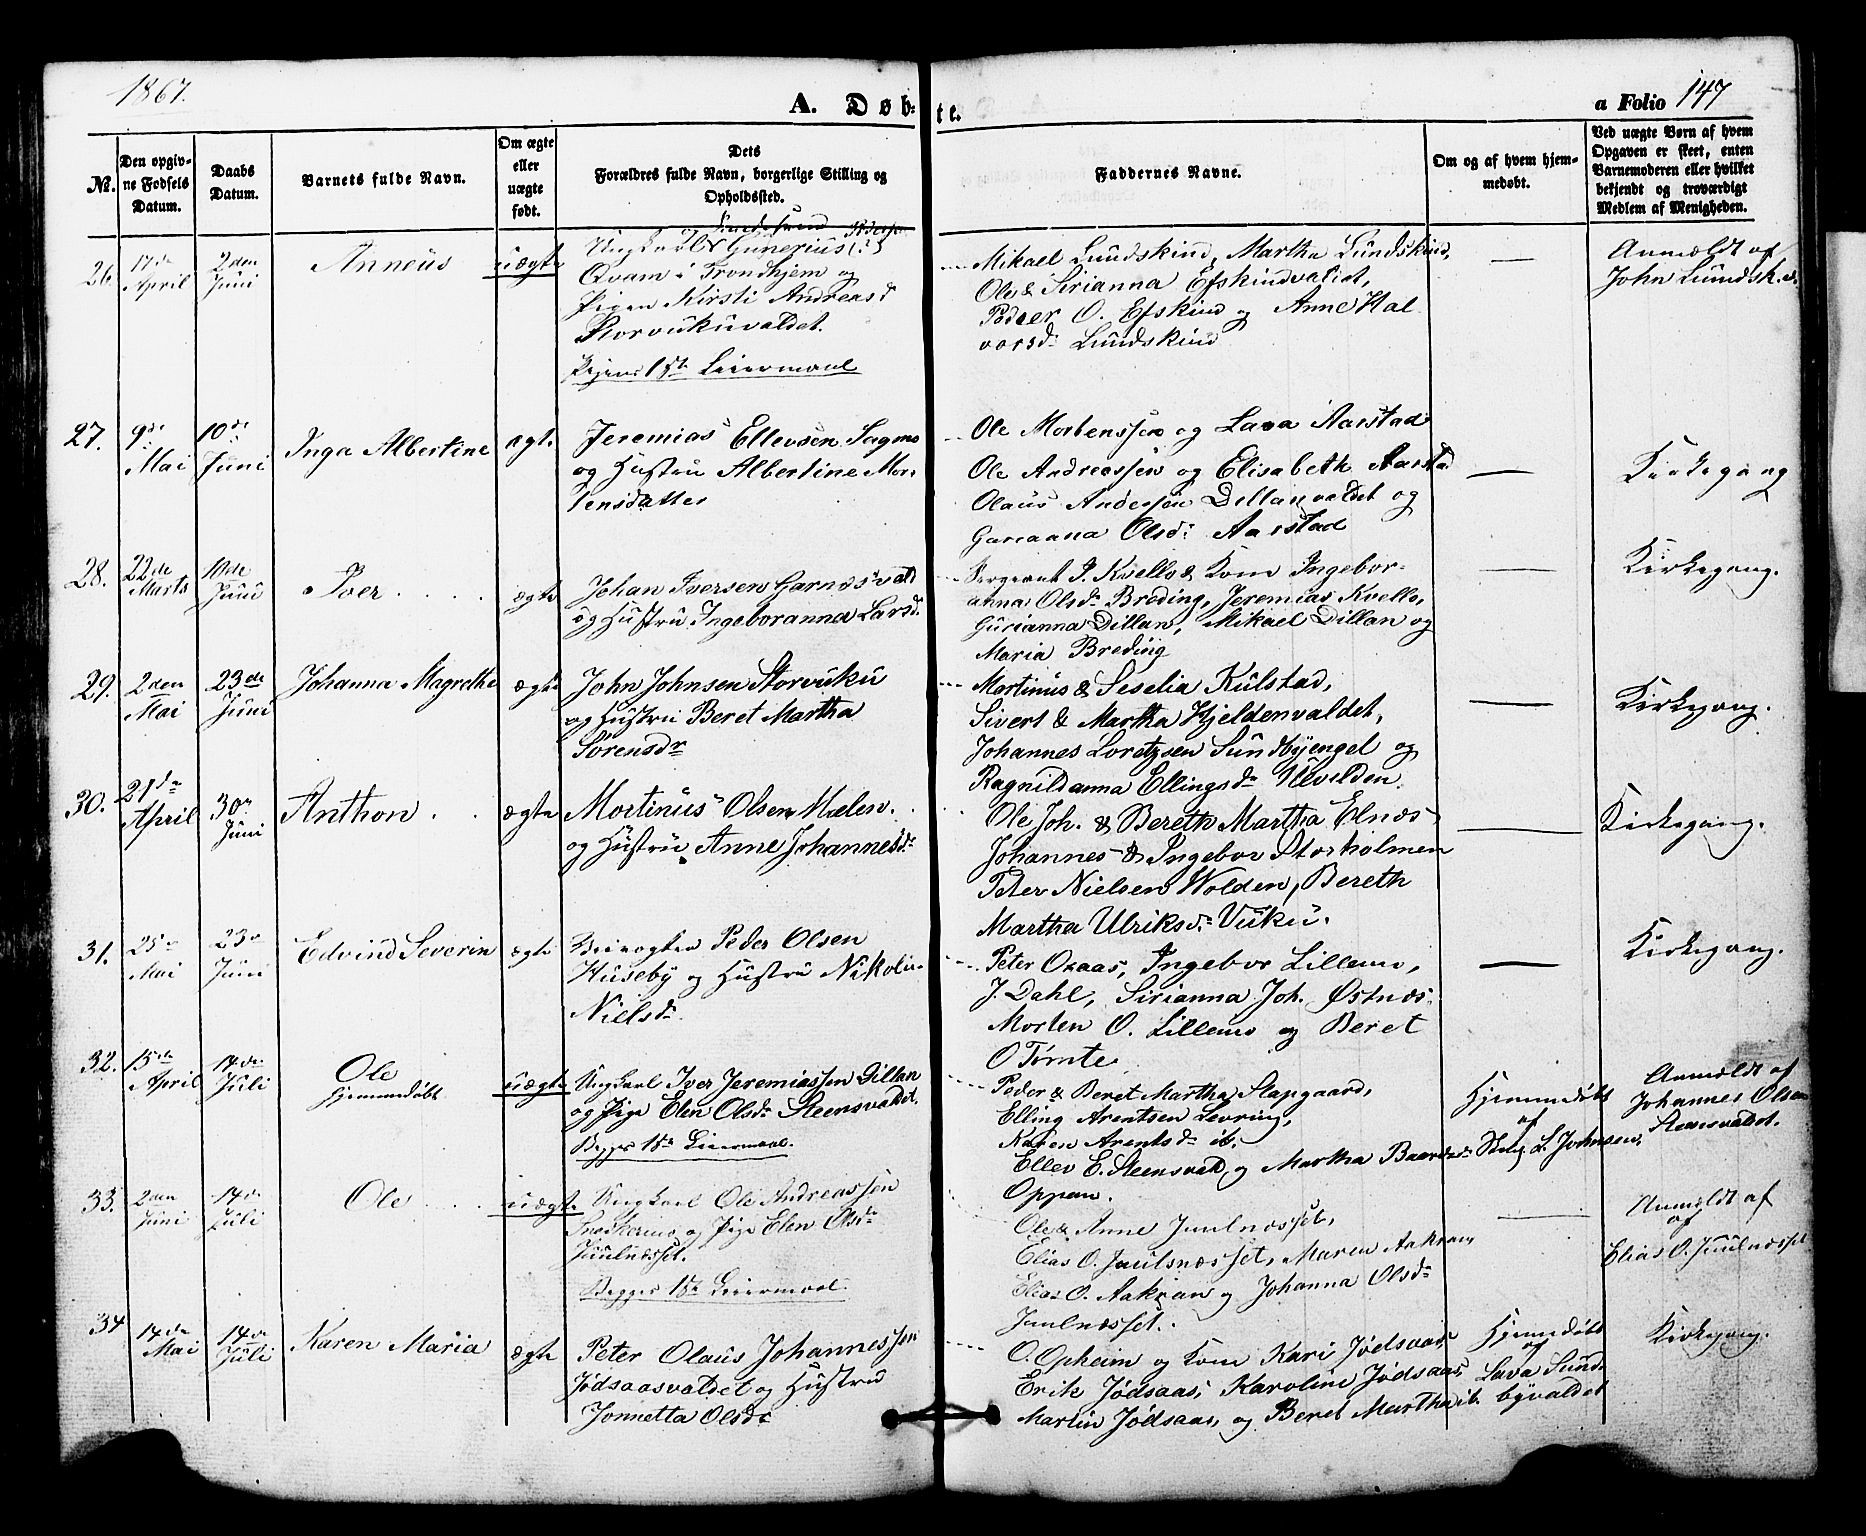 1867.
A. Døb-
te.
a Folio 147
No.
Den opgiv-
ne Fødsels
Datum.
Daabs
Datum.
Barnets fulde Navn.
Om ægte
eller
uægte
født.
Dets
Forældres fulde Navn, borgerlige Stilling og
Opholdssted.
Faddernes Navne.
Om og af hvem hjem-
medøbt.
Ved uægte Børn af hvem
Opgaven er skeet, enten
Barnemoderen eller hvilket
bekjendt og troværdigt
Medlem af Menigheden.
26.
17de
April
2den
Juni
Anneus
uægte
Ungkarl Gunerius (?)
Qvam i Trondhjem og
Pigen Kirsti Andreasd
Storvukuvaldet.
Pigens 1ste Leiermaal
Mikael Lundskind, Martha Lundskind,
Ole & Sirianna Efskindvaldet,
Peder O. Efskind og Anne Hal
vorsd: Lundskind
—
Anmældt af
John Lundsk.
27.
9de
Mai
10de
Juni
Inga Albertine
ægte
Jeremias Ellevsen Sagmo
og Hustru Albertine Mor-
tensdatter
Ole Mortenssen og Lava Aarstad
Ole Andreassen og Elisabeth Aarstad
Olaus Andersen Dillanvaldet og
Gurianna Olsd: Aarstad
—
Kirkegang
28.
22de
Marts
10de
Juni
Iver . . . .
ægte
Johan Iversen Garnæsvald
og Hustru Ingeboranna Larsd.
Sergeant P. Kvello & Kone Ingebor-
anna Olsdr Breding, Jeremias Kvello,
Gurianna Dillan, Mikael Dillan og
Maria Breding
—
Kirkegang.
29.
2den
Mai
23de
Juni
Johanna Magrethe
ægte
John Johnsen Storvuku
og Hustru Beret Martha
Sørensdr
Mortinus & Seselia Kulstad,
Sivert & Martha Hjeldenvaldet,
Johannes Loretzsen Sundbyengel og
Ragnildanna Ellingsdr Ulvilden
—
Kirkegang.
30.
21de
April
30te
Juni
Anthon . .
ægte
Mortinus Olsen Mælen.
og Hustru Anne Johannesdr
Ole Joh. & Bereth Martha Elnæs
Johannes & Ingebor Storholmen
Peter Nielsen Wolden, Bereth
Martha Ulriksdr Vuku.
—
Kirkegang.
31.
25de
Mai
23de
Juni
Edvind Severin
ægte
Peder Olsen
Huseby og Hustru Nikolin
Nielsdr
Peter Oxaas, Ingebor Lillemo,
J. Dahl, Sirianna Joh. Østnæs
Morten O. Lillemo og Beret
O Tømte.
—
Kirkegang.
32.
15de
April
14de
Juli
Ole
Hjemmedøbt
uægte
Ungkarl Iver Jeremiassen Dillan
og Pige Elen Olsdr Steensvaldet.
Begges 1ste Leiermaal.
Peder & Beret Martha Slapgaard,
Elling Arentsen Levring,
Karen Arentsdr ib.
Ellev E. Steensvald og Martha Baardsdr
Oppem.
Hjemmedøbt
af
L. Johnsen,
Anmældt af
Johannes Olsen
Steensvaldet.
33.
2den
Juni
14de
Juli
Ole . . . .
uægte
Ungkarl Ole Andreassen
og Pige Elen Olsdr
Juulnæsset.
Begges 1ste Leiermaal.
Ole & Anne Juulnæsset,
Elias O. Juulnæsset, Maren Aakran,
Elias O. Aakran og Johanna Olsdr
Juulnæsset.
—
Anmældt af
af
Elias O. Juulnæsset
34
14de
Mai
14de
Juli
Karen Maria
ægte
Peter Olaus Johannessen
Jødsaasvaldet og Hustru
Jonnetta Olsdr
O. Opheim og Kone Kari Jødsaas,
Erik Jødsaas, Karoline Jødsaas,
Martin Jødsaas og Beret Martha ib.
Hjemmedøbt
og
Lava Sund-
byvaldet
Kirkegang.